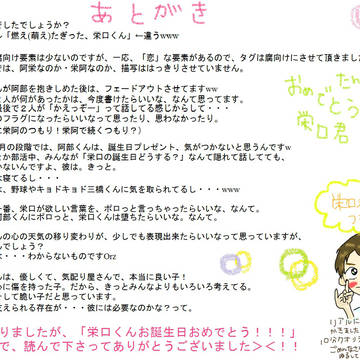 あとがき
でしたでしょうか?
「燃え(萌え)たぎった、栄口くん」←違うwww
腐向け要素は少ないのですが、一応、「恋」な要素があるので、タグは腐向けにさせて頂きまし
では、阿栄なのか・栄阿なのか、描写ははっきりさせていません。
んが阿部を抱きしめた後は、フェードアウトさせてますww
2人が何があったかは、今度書けたらいいな、なんて思ってます。
最後で2人が「かえっぞー」って話してる感じからして・・・
のフラグになったらいいなって思ったり、思わなかったり。
に栄阿のつもり!栄阿で続くつもり?)
月の段階では、阿部くんは、誕生日プレゼント、気がつかないと思うんですw
とか部活中、みんなが「栄口の誕生日どうする?」なんて隠れて話してても、
かないんですよ、彼は。きっと。
は寝てるし・・・
は、野球やキョドキョド三橋くんに気を取られてるし・・・ww
一番、栄口が欲しい言葉を、ポロっと言っちゃったらいいな、なんて。
阿部くんにポロっと、栄口くんは堕ちたらいいな、なんて。
んの心の天気の移り変わりが、少しでも表現出来たらいいなって思っていますが、
でしょう?
は・・・わからないものですOrz
んは、優しくて、気配り屋さんで、本当に良い子!
心に傷を持った子。だから、きっとみんなよりもいろいろ考えてる。
そして脆い子だと思っています。
支えられる存在が・・・彼には必要なのかな?って。
りましたが、「栄口くんお誕生日おめでとう!!!」
で、読んで下さってありがとうございました><!!
おめでとう
栄口君